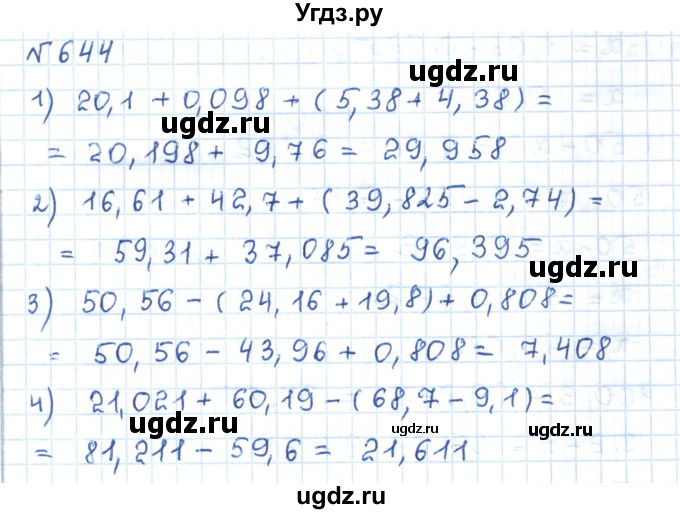 Угдз.ру
№ 644
ugdz.ru
1) 20,1 + 0,098 + (5,38 + 4,38) =
ugdz.ru
= 20,198 + 9,76 = 29,958
ugdz.ru
2) 16,61 + 42,7 + (39,825 - 2,74) =
= 59,31 + 37,085 = 96,395
ugdz.ru
3) 50,56 - (24,16 + 19,8) + 0,808 =
ugdz.ru
= 50,56 - 43,96 + 0,808 = 7,408
ugdz.ru
4) 21,021 + 60,19 - (68,7 - 9,1) =
ugdz.ru ugdz.ru
= 81,211 - 59,6 = 21,611
ugdz.ru